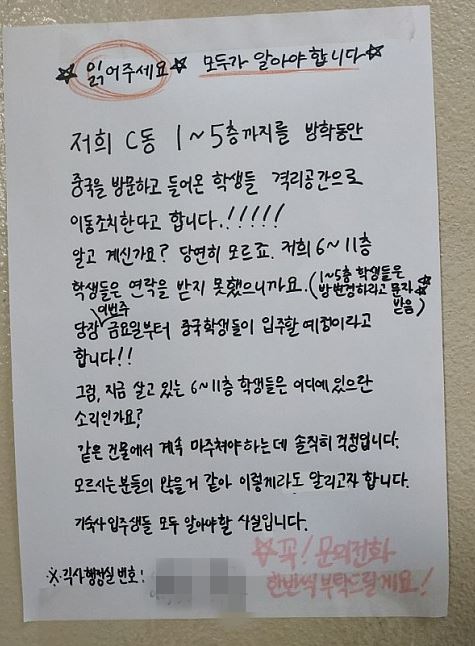 ☆ 읽어주세요 ☆ 모두가 알아야 합니다 ☆
저희 C동 1~5층까지를 방학동안
중국을 방문하고 들어온 학생들 격리공간으로
이동조치한다고 합니다.!!!!!!
알고 계신가요? 당연히 모르죠. 저희 6~11층
학생들은 연락을 받지 못했으니까요. (1~5층 학생들은 방변경하라고 문자 받음)
당장 이번주 금요일부터 중국학생들이 입주할 예정이라고
합니다!!
그럼, 지금 살고 있는 6~11층 학생들은 어디에 있으란
소리인가요?
같은 건물에서 계속 마주쳐야하는데 솔직히 걱정입니다.
모르시는분들의 많을거 같아 이렇게라도 알리고자 합니다.
기숙사 입주생들 모두 알아야할 사실입니다.
☆꼭! 문의전화
한번씩 부탁드릴게요!
※각사행정실 번호: